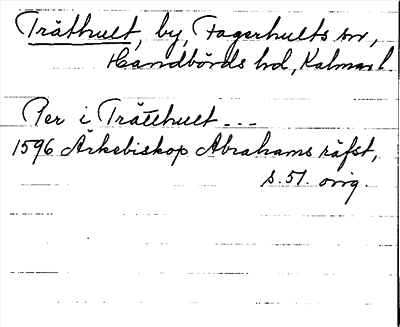 Tråthult, by, Fagerhults sn,
Handbörds hd, Kalmar l.
Per i Tråtthult ---
1596 Ärkebiskop Abrahams räfst,
s. 51. orig.